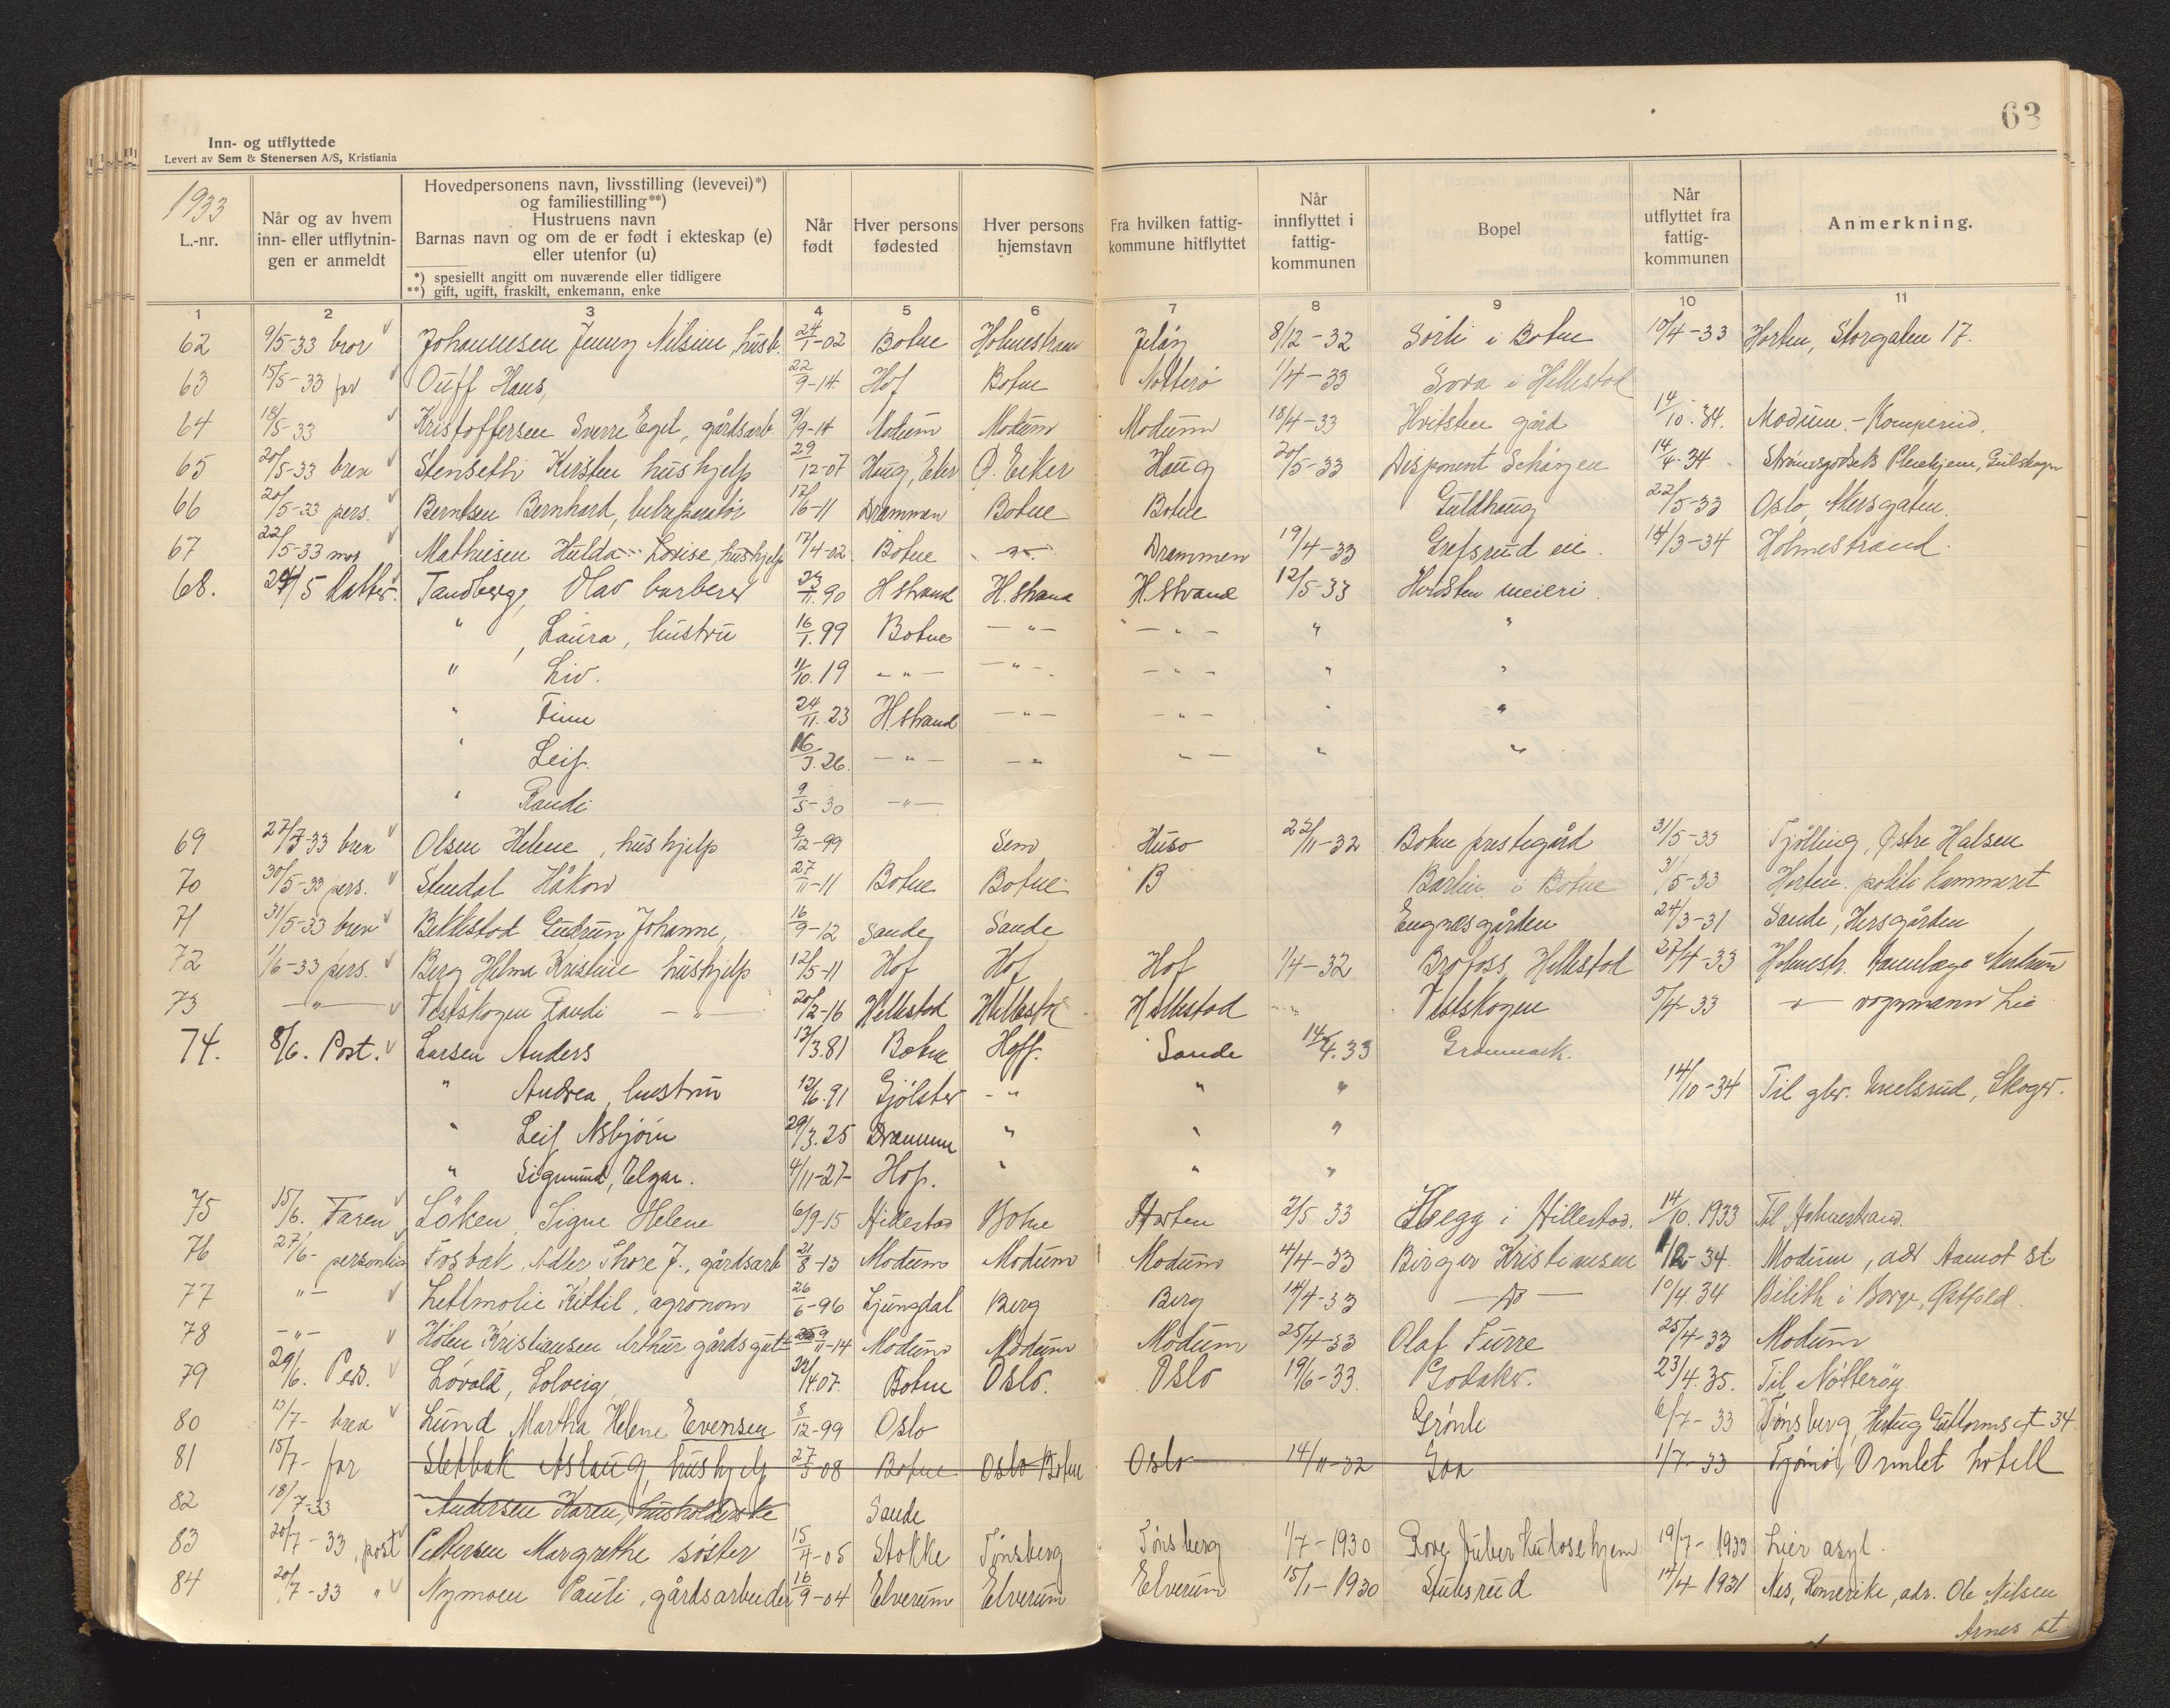 63
Inn- og utflyttede
Levert av Sem & Stenersen A/S, Kristiania
1933
L.-nr.
Når og av hvem inn- eller utflytnin- gen er anmeldt
Hovedpersonens navn, livsstilling (levevei)*)
og familiestilling**)
Hustruens navn
Barnas navn og om de er født i ekteskap (e)
eller utenfor (u)
*) spesiellt angitt om nuværende eller tidligere
**) gift, ugift, fraskilt, enkemann, enke
Når født
Hver persons fødested
Hver persons hjemstavn
Fra hvilken fattig- kommune hitflyttet
Når innflyttet i fattig- kommunen
Bopel
Når utflyttet fra fattig- kommunen
Anmerkning.
1 2 3 4 5 6 7 8 9 10 11
62 9/5-33 bror Johannesen Jenny Nilsine, hush. 24/1-02 Botne Holmestrand Jeløy 8/12-32 Sørli i Botne 10/4-33 Horten, Storgaten 17.
63 15/5-33 far Ouff Hans, 22/9-14 Hof Botne Nøtterø 1/4-33 i Hillestad
64 18/5-33 Kristoffersen Sverre Egil, gårdsarb. 9/9-14 Modum Modum Modum 18/4-33 Hvitsten gård 14/10-34. Modum.
65 20/5-33 brev Stenseth Kirsten hushjelp 29/12-07 Haug, Eker Ø. Eiker Haug 20/5-33 Disponent 14/4-34
66 20/5-33 pers. Berntsen Bernhard, 12/6-11 Drammen Botne Botne Guldhaug 22/5-33 Oslo, Akersgaten.
67 22/5-33 mor Mathiesen Hulda Lovise, hushjelp 17/4-02 Botne -"- Drammen 19/4-33 Grefsrud eie. 14/3-34 Holmestrand.
68. 24/5 Tandberg, Olav barberer 23/11.90 H strand H. strand H. strand 12/5-33 Hvidsten meieri.
" , Laura, hustru 16/1.99 Botne -"- -"- " "
" Liv. 1/10.19 -"- -"- -"- " "
" Finn 24/11.23 H. strand -"- -"- " "
" Leif. 16/3.26. -"- -"- "- " "
" Randi 9/5-30 -"-
69 27/5-33 brev Olsen Helene, hushjelp 9/12-99 Sem Husø 22/11-32 Botne prestegård 31/5-33 Tjølling, Østre Halsen
70 30/5-33 pers. Stendal Håkon 27/11-11 Botne Botne B i Botne 31/5-33 Horten politikammeret
71 31/5-33 brev Bekkestad Gudrun Johanne, 16/9-12 Sande Sande Engnæsgården 24/3-31 Sande,
72 1/6-33 pers. Berg Helma Kristine hushjelp 12/5-11 Hof Hof Hof 1/4-32 Brofoss, Hillestad 27/4-33 Holmestr.
73 -"- Vestskogen Randi -"- 20/2-16 Hillestad Hillestad Hillestad Vestskogen 5/4-33 -"- vognmann Lie
74. 8/6. Post. Larsen Anders 13/3.81 Botne Hoff. Sande 14/4.33
" Andrea, hustru 12/6.91 Gjølster -"- " " 14/10-34 Til Skoger.
" Leif Asbjörn 29/3.25 Drammen " " "
" Sigmund, Elgar. 4/11-27- Hof. " " "
75 15/6. Faren Löken, Signe Helene 6/9-15 Hillestad Botne Horten 2/5-33 Hegg i Hillestad. 14/10.1933 Til Holmestrand.
76 27/6- personlig Fosbak, Adler Thore J., gårdsarb 21/8-13 Modum Modum Modum 4/4-33 Birger Kristiansen 1/2-34. Modum, adr Aamot st
77 -"- Kittil, agronom 26/6-96 Ljungdal Berg Berg 14/4-33 -do- 10/4.34 i Borge, Østfold.
78 -"- Hølen Kristiansen Arthur gårdsgutt 11-14 Modum Modum Modum 25/4-33 Olaf Furre 25/4-33 Modum
79 29/6. Pers. Lövald, Solveig, 22/4.07. Botne Oslo. Oslo 19/6-33. Godaker. 23/4.35. Til Nötteröy.
80 13/7- brev Lund Martha Helene Evensen 8/12-99 Oslo Grønli 6/7-33 Tønsberg, Hertug Guttormsgt 34.
81 15/7- far Sletbak Aslaug, hushjelp 27/5-08 Botne Oslo Botne Oslo 14/11-32 Goa 1/7-33 Tjømø, Ormlet hotell
82 18/7-33 Andersen Karen, husholderske Sande
83 20/7-33, post Pettersen Margrethe søster 15/4-05 Stokke Tønsberg Tønsberg 1/7-1930 Rove Tuberkulosehjem 19/7-1933 Lier asyl.
84 20/7-33 " Nymoen Pauli, gårdsarbeider 16/9-04 Elverum Elverum Elverum 15/1-1930 14/4-1931 Nes, Romerike, adr. Ole Nilsen
Arnes st.